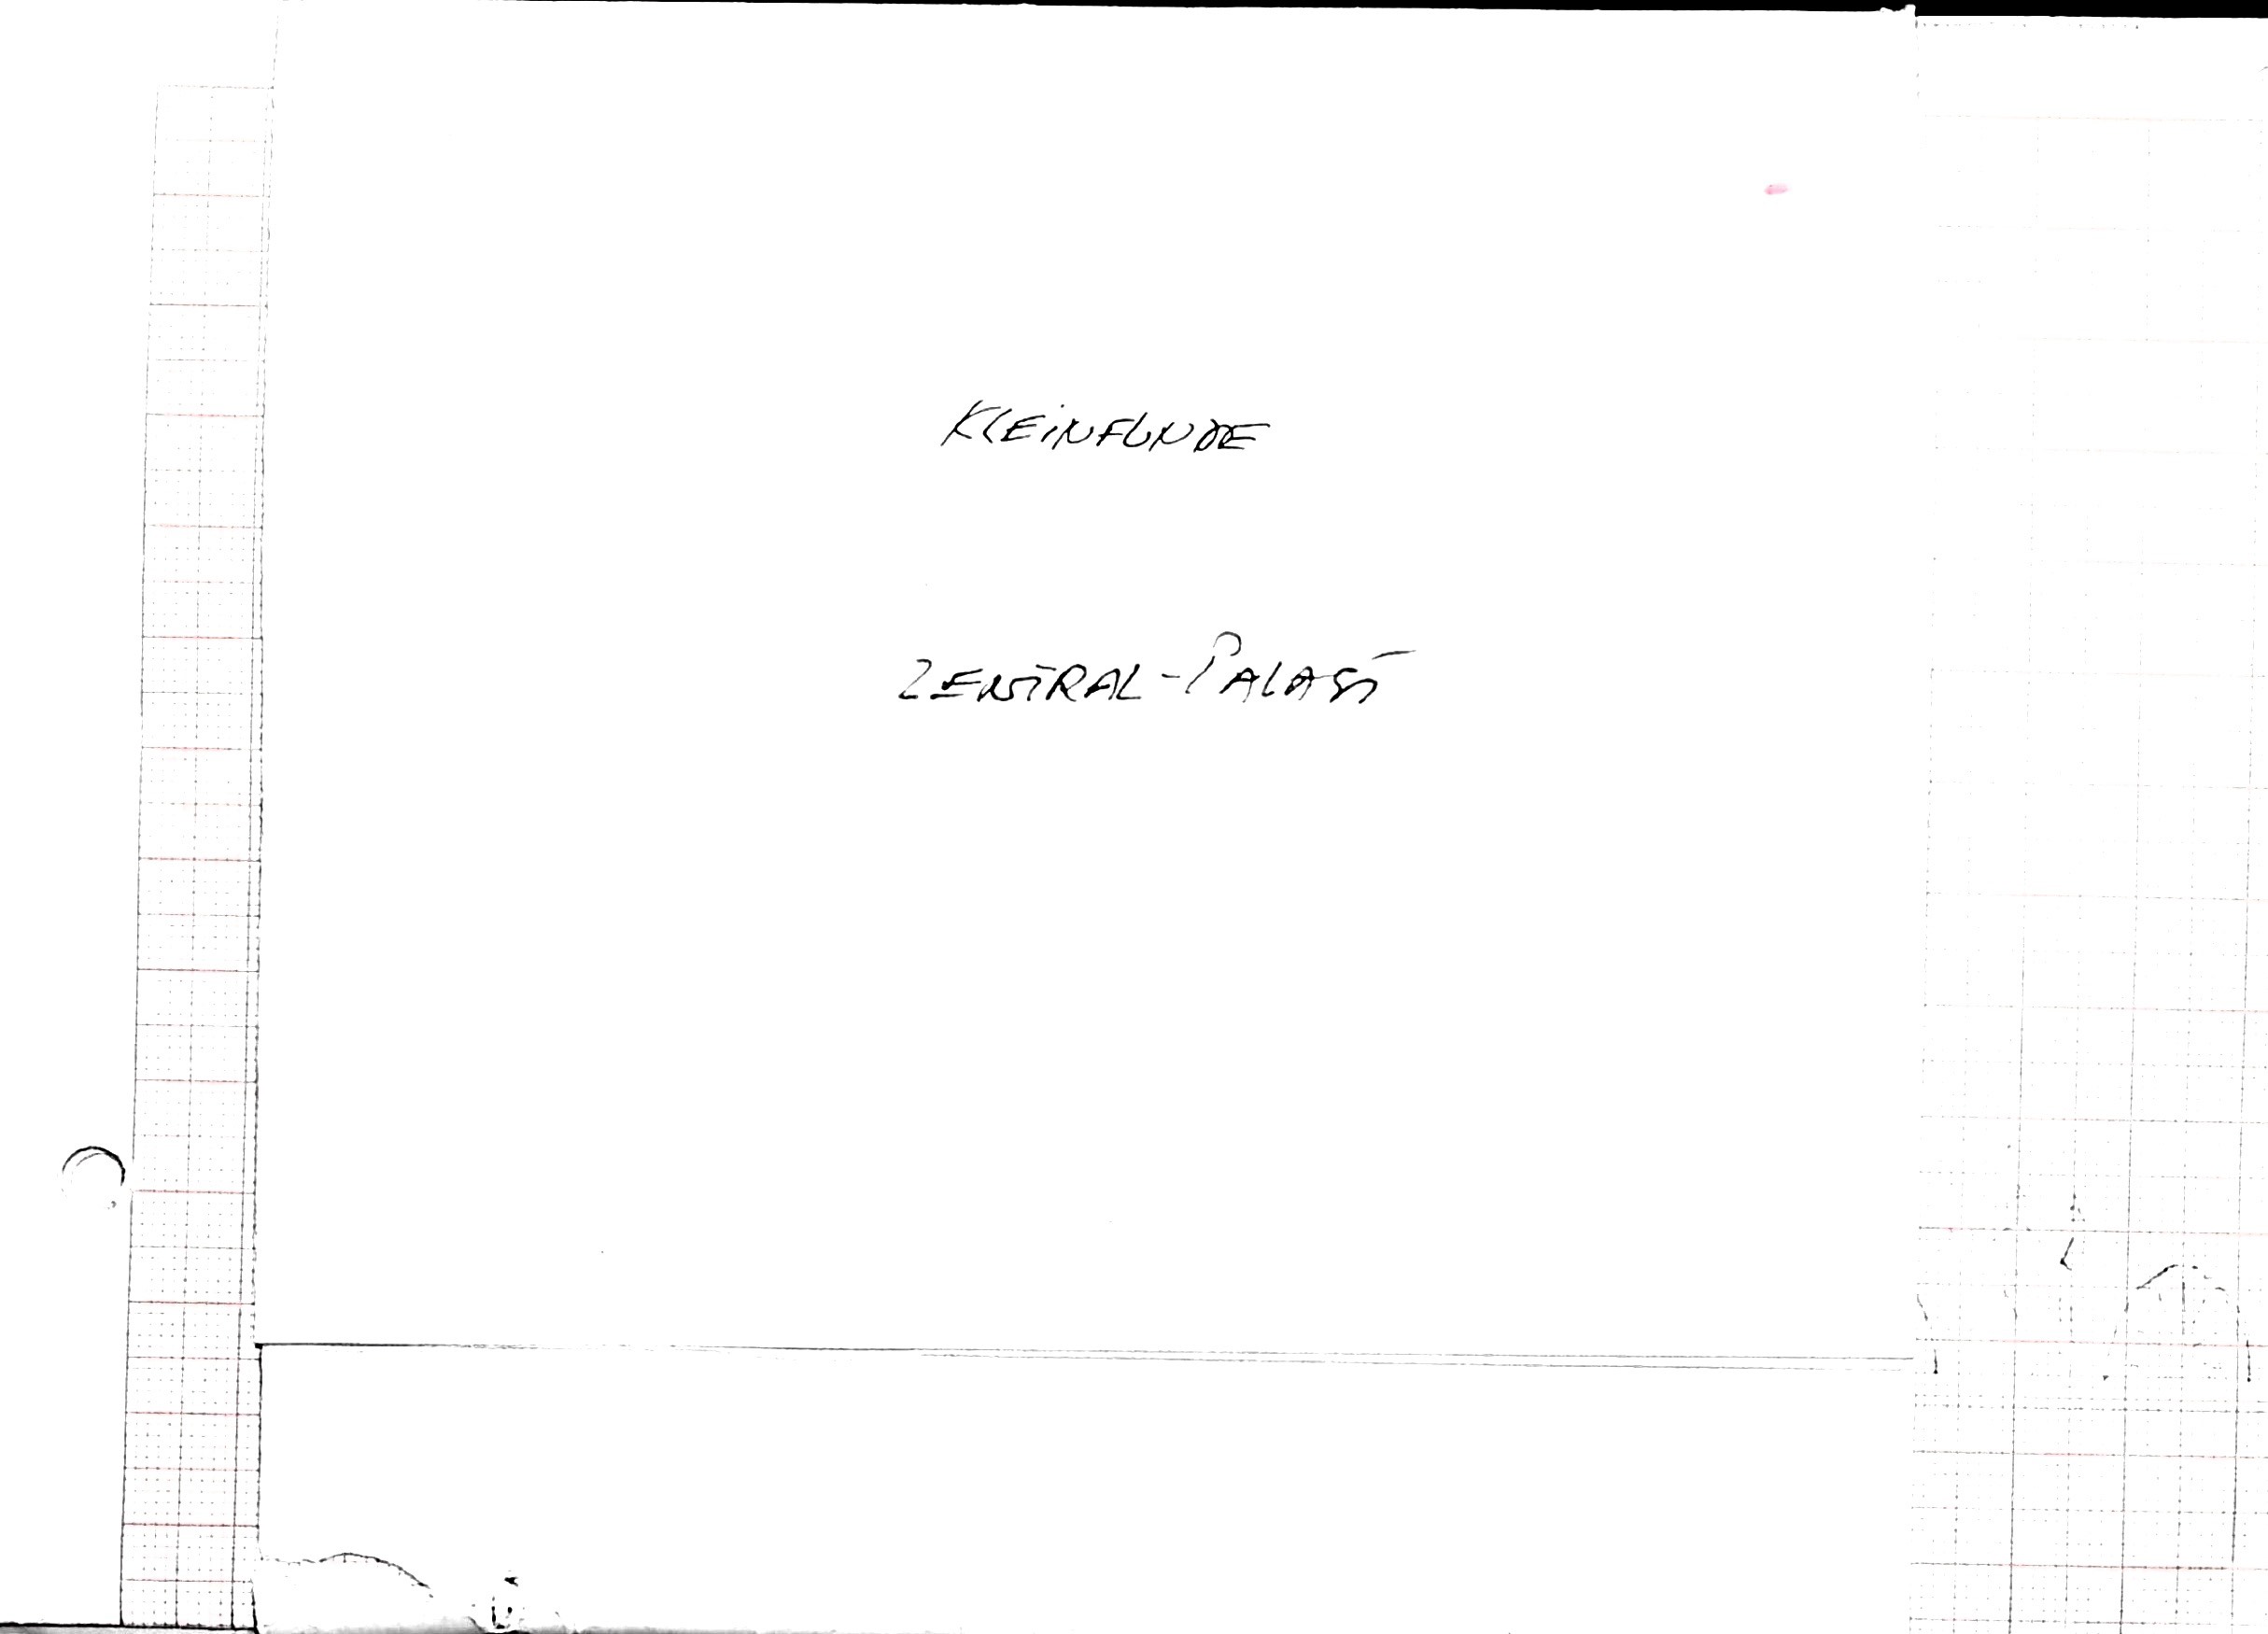 KLEINFUNDE
ZENTRAL-PALAST